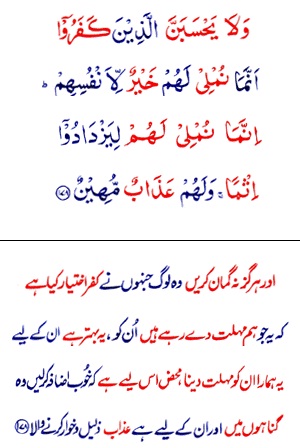 وَلَا يَحْسَبَنَّ الَّذِيْنَ كَفَرُوْۤا
اَنَّمَا نُمْلِىْ لَهُمْ خَيْرٌ لِّاَ نْفُسِهِمْ ؕ
اِنَّمَا نُمْلِىْ لَهُمْ لِيَزْدَادُوْۤا
اِثْمًا ۚ وَلَهُمْ عَذَابٌ مُّهِيْنٌ ﴿۱۷۸﴾
اور ہرگز نہ گمان کریں وہ لوگ جنہوں نے کفر اختیار کیا ہے
کہ یہ جو ہم مہلت دے رہے ہیں اُن کو ، یہ بہتر ہے ان کے لیے
یہ ہمارا ان کو مہلت دینا محض اس لیے ہے کہ خُوب اضافہ کرلیں وہ
گناہوں میں اور ان کے لیے ہے عذاب ذلیل و خوار کرنے والا ﴿۱۷۸﴾